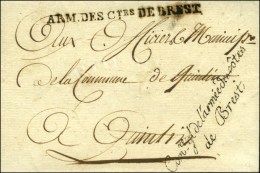 ARM. DES Ctes DE BREST
Aux Officiers Municip
de la Commune de Quintin
à Quintin
de l'armée des côtes
de Brest